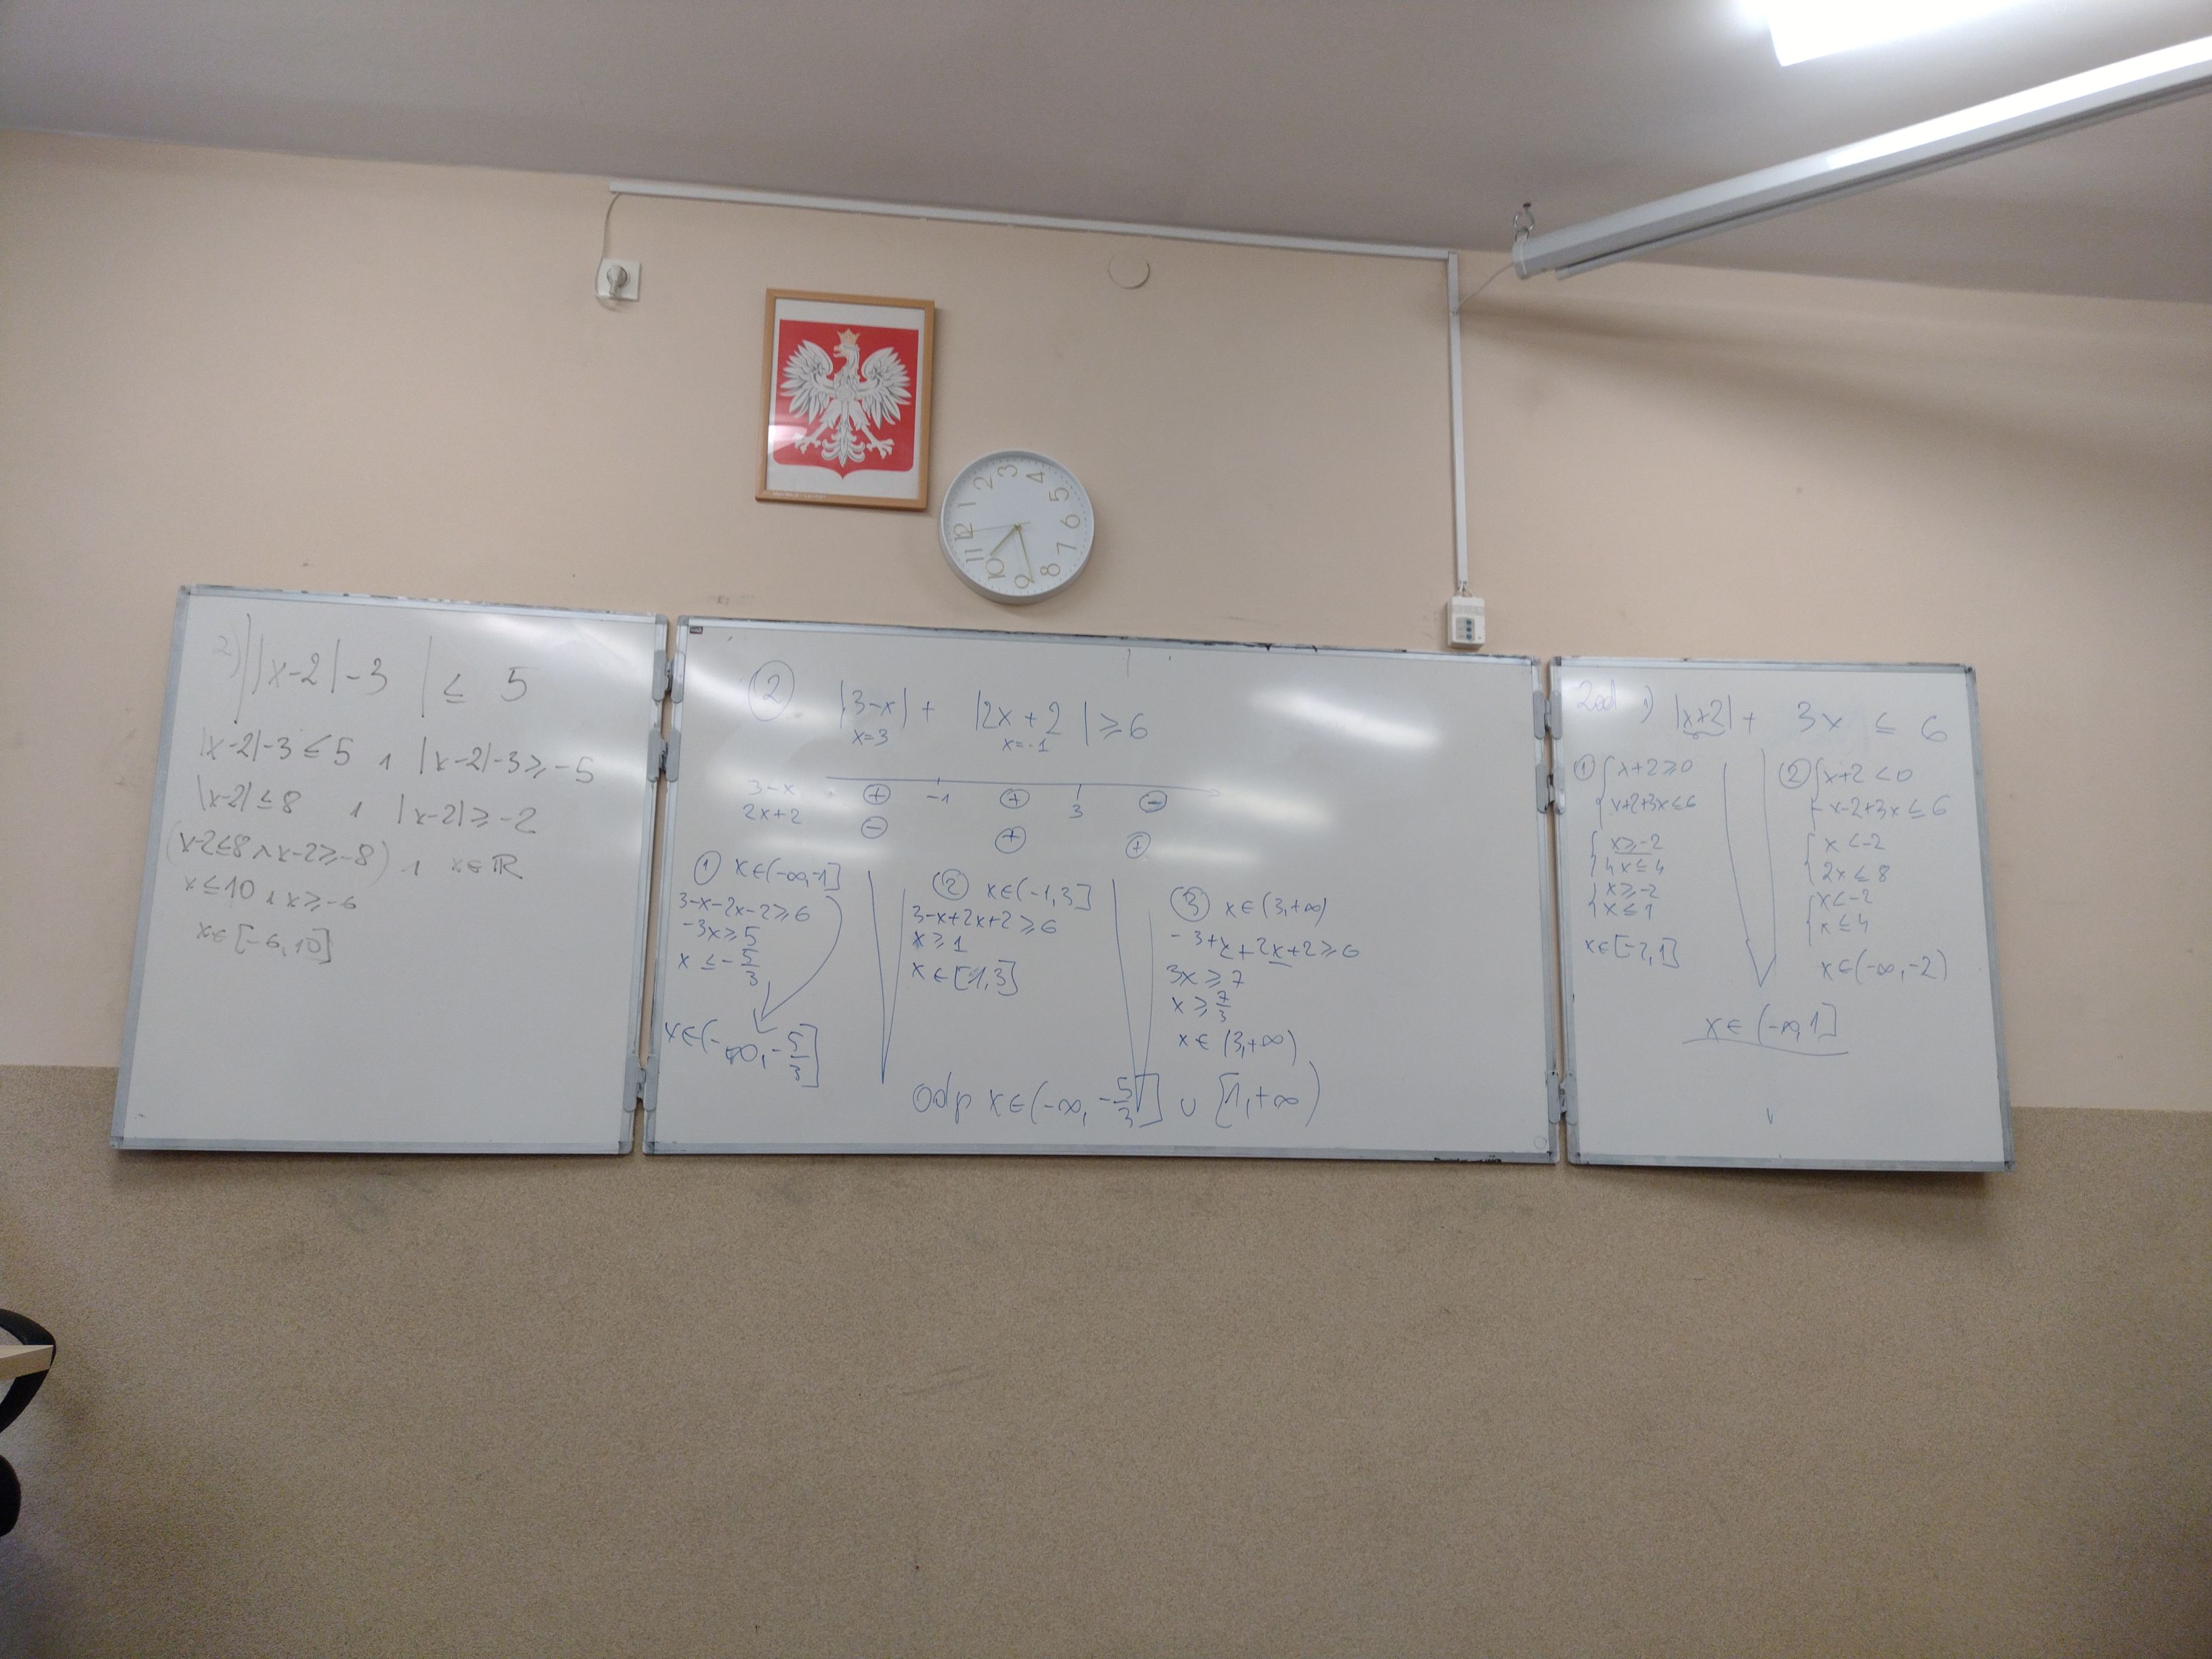 2) ||x-2|-3| ≤ 5
|x-2|-3 ≤ 5 ∧ |x-2|-3 ≥ -5
|x-2| ≤ 8 ∧ |x-2| ≥ -2
(x-2≤8 ∧ x-2≥-8) ∧ x∈ℝ
x ≤ 10 ∧ x ≥ -6
x∈[-6,10]
② |3-x| + |2x+2| ≥ 6
x=3 x=-1
3-x ⊕ -1 ⊕ 3 ⊖
2x+2 ⊖ ⊕ ⊕
① x∈(-∞,-1]
3-x-2x-2≥6
-3x≥5
x ≤ -5/3
x∈(-∞,-5/3]
② x∈(-1,3]
3-x+2x+2≥6
x≥1
x∈[1,3]
③ x∈(3,+∞)
-3+x+2x+2≥6
3x≥7
x≥7/3
x∈(3,+∞)
Odp x∈(-∞,-5/3] ∪ [1,+∞)
Zad 1) |x+2| + 3x ≤ 6
① x+2≥0
x+2+3x≤6
x≥-2
4x≤4
x≥-2
x≤1
x∈[-2,1]
② x+2<0
-x-2+3x≤6
x<-2
2x≤8
x<-2
x≤4
x∈(-∞,-2)
x∈(-∞,1]
1
2
3
4
5
6
7
8
9
10
11
12